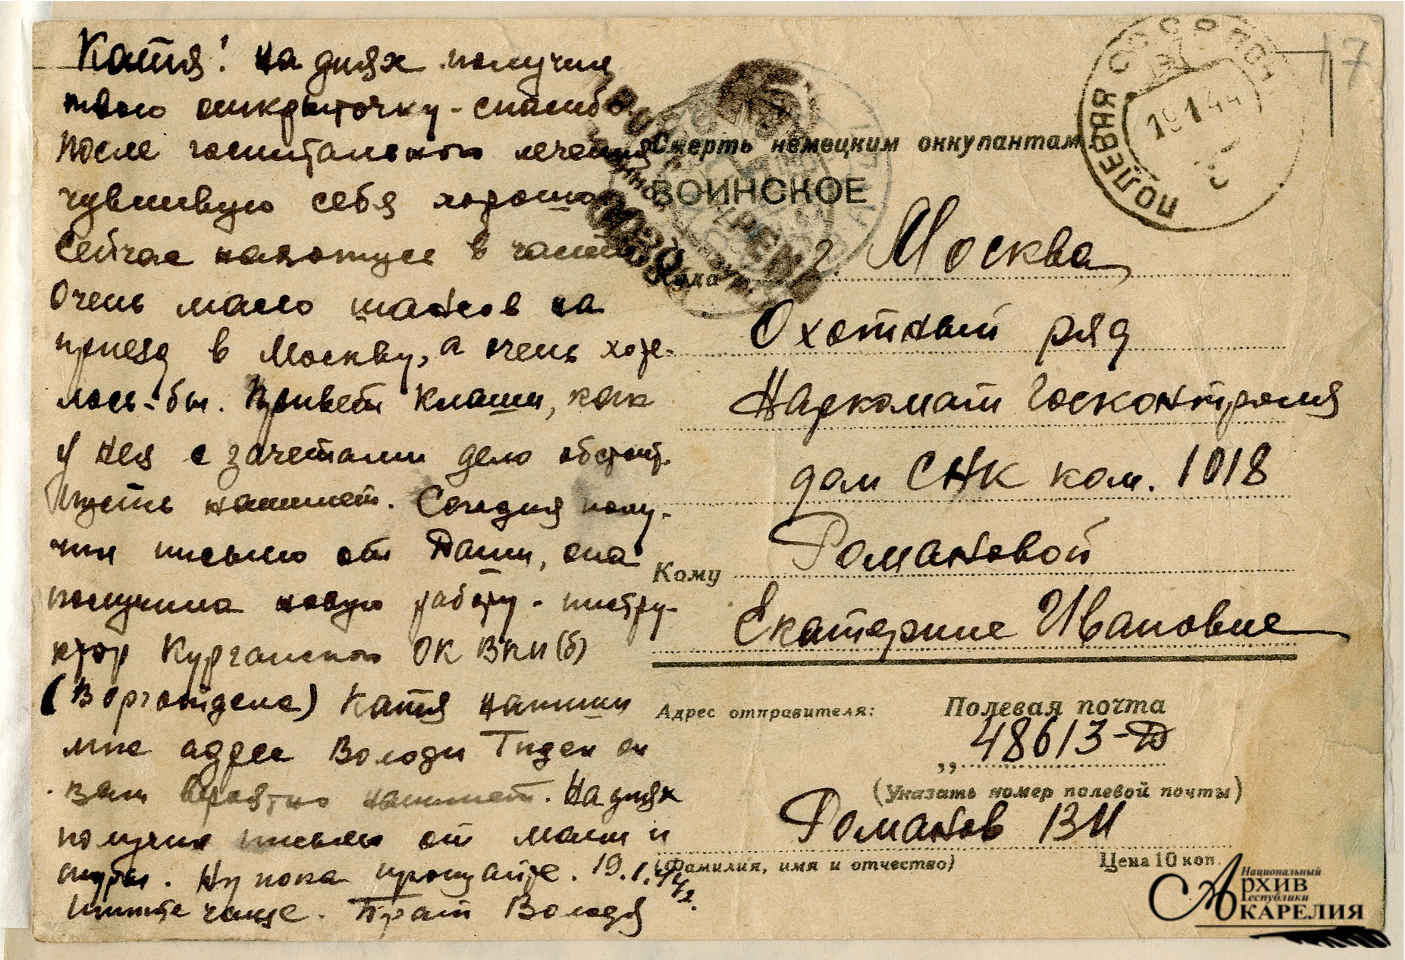 Катя! На днях получил
твою открыточку - спасибо
После госпитального лечения
чувствую себя хорошо
Сейчас нахожусь в части
Очень мало шансов на
приезд в Москву, а очень хоте-
лось-бы. Привет Клаши, как
у ней с зачетами дело обстоит.
Пусть напишет. Сегодня полу-
чил письмо от Даши, она
получила новую работу - инстру-
ктор Курганского ОК ВКП(б)
(В оргатдела) Катя напиши
мне адрес Володи Тиден он
вам вероятно напишет. На днях
получил письмо от мамы и
Шуры. Ну пока прощайте. 19.1.44г.
Пишите чаще. Брат Володя
Смерть немецким оккупантам
ВОИНСКОЕ
Куда г. Москва
Охотный ряд
Наркомат Госконтроля
дом СНК ком. 1018
Кому Романовой
Екатерине Ивановне
Адрес отправителя: Полевая почта
48613-Д
(Указать номер полевой почты)
Романов ВИ
(Фамилия, имя и отчество) Цена 10 коп.
ПОЛЕВАЯ СССР ПОЧТА
19 1 44
17
Национальный
Архив
Республики
Карелия